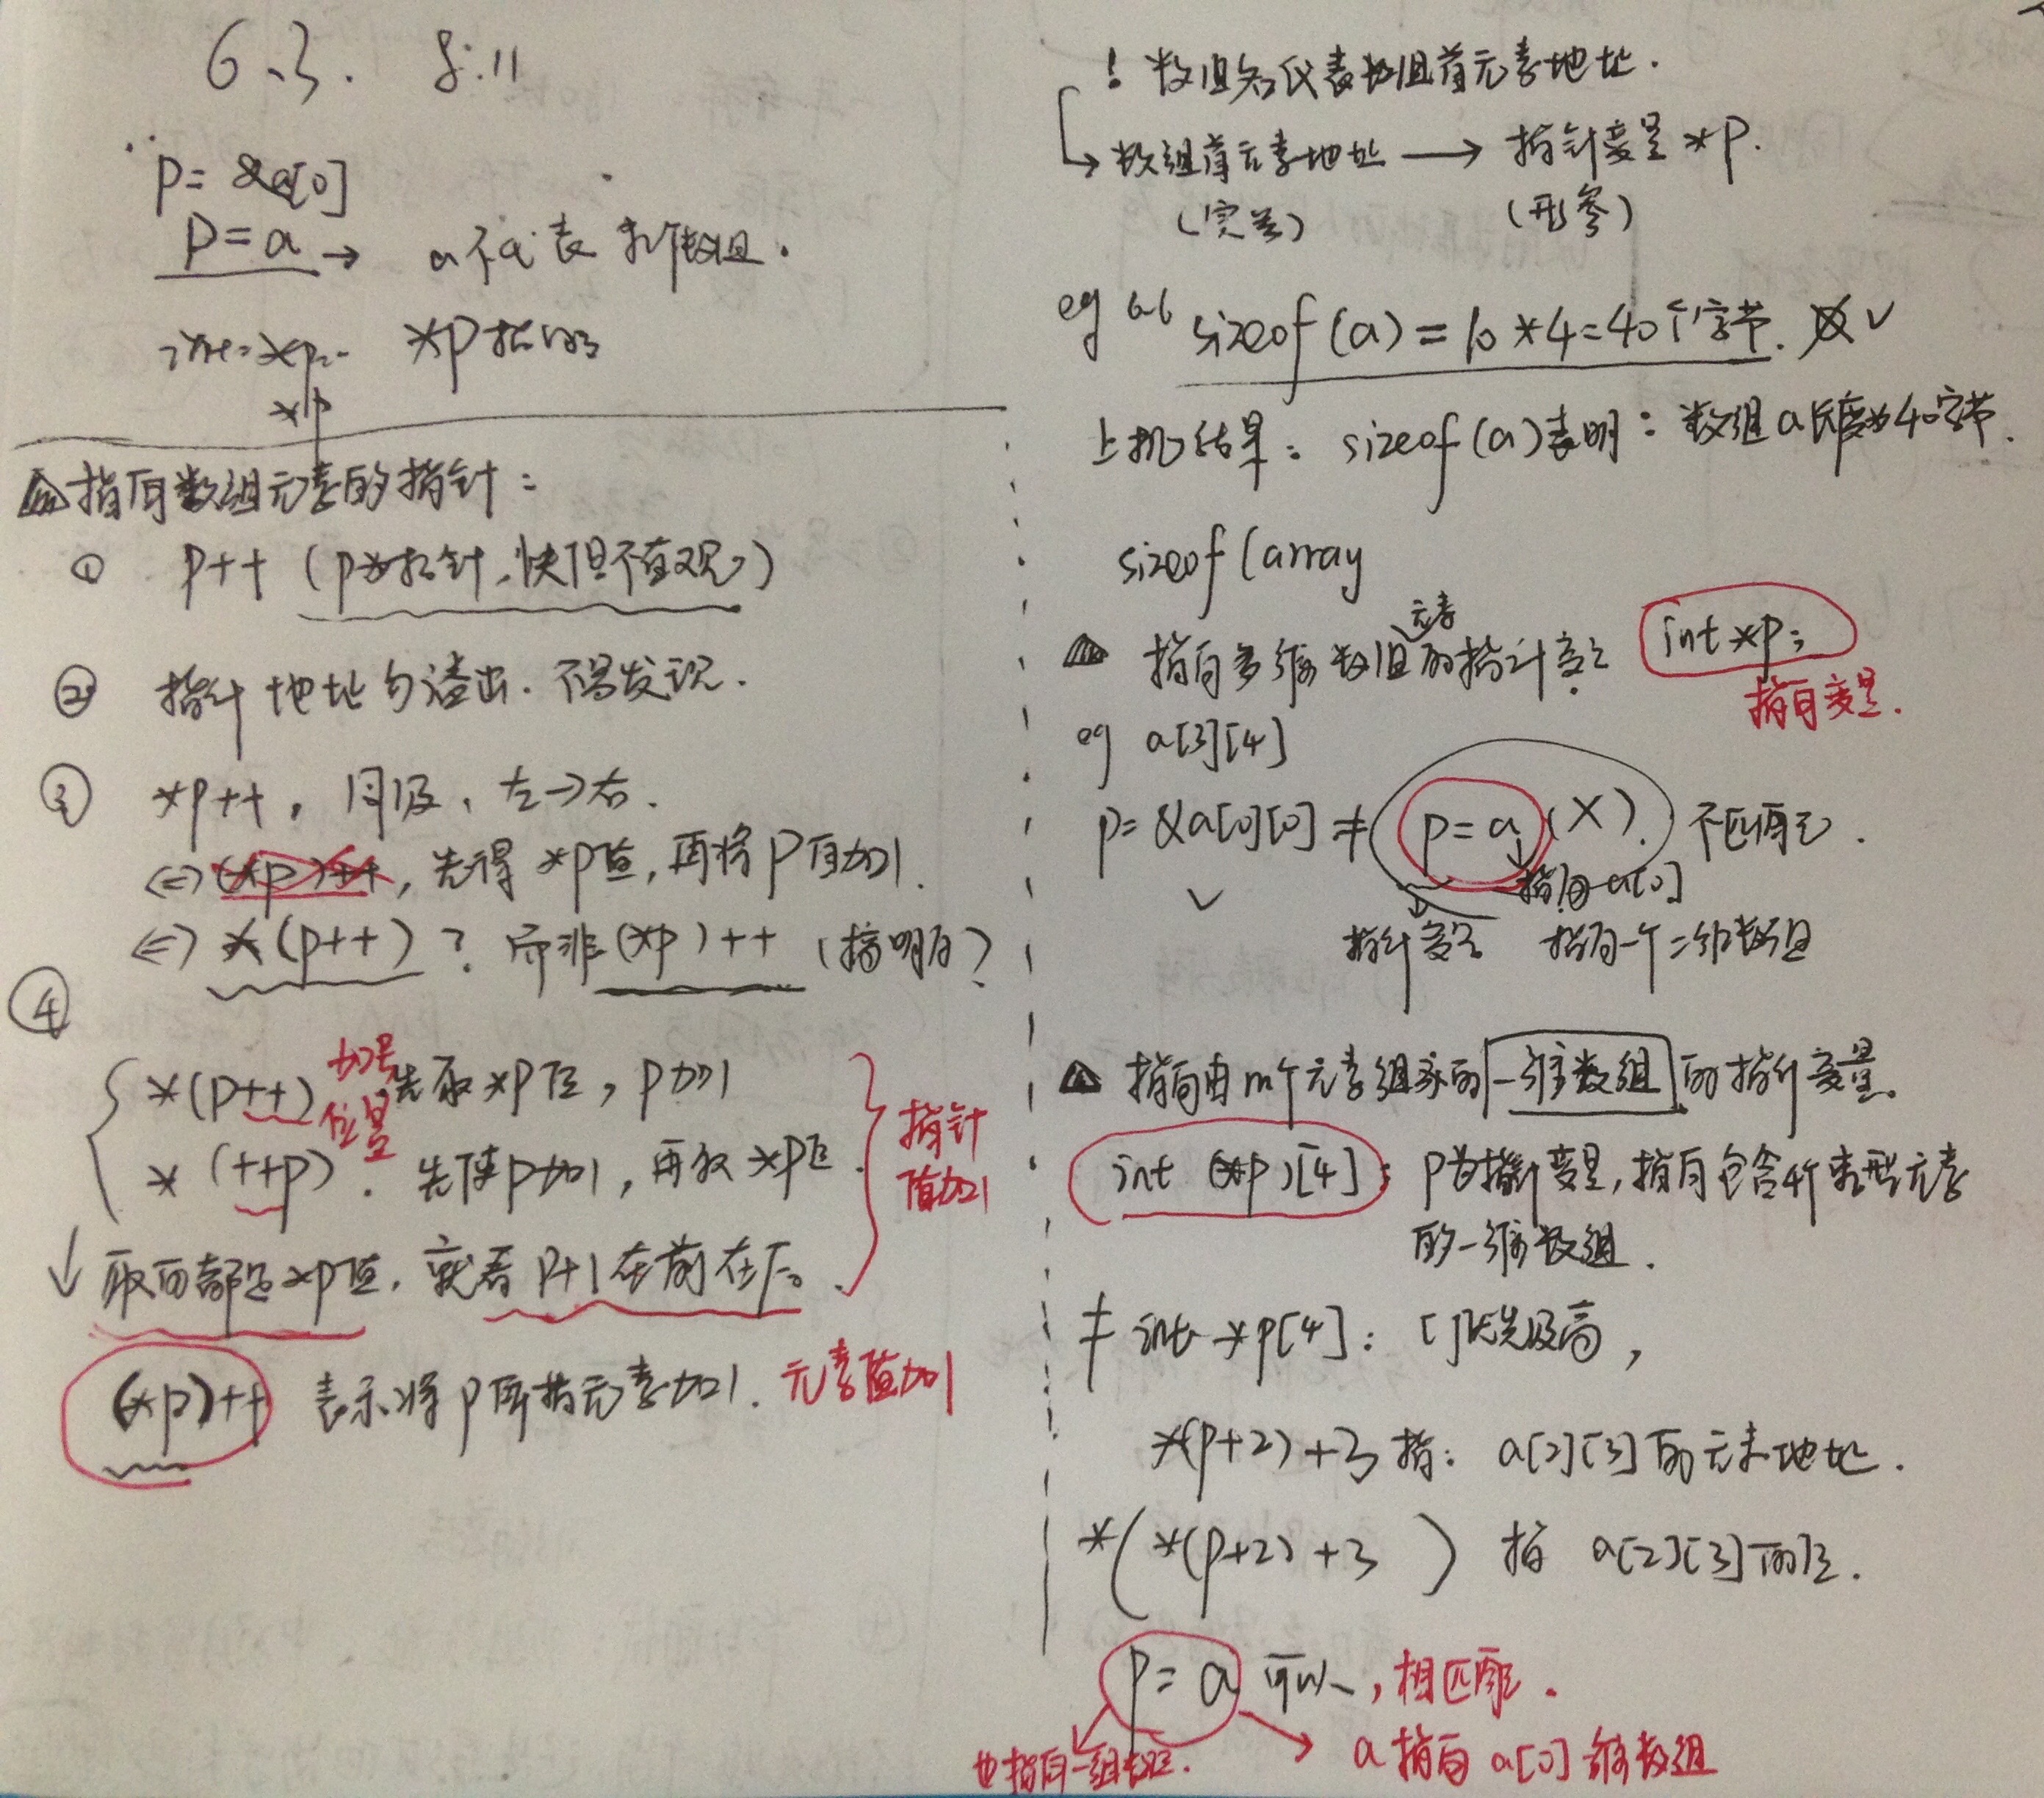 6.3. 8:11
p= &a[0]
p=a → a不代表整个数组.
*p
*p
指向数组元素的指针:
① p++ (p为指针,快但不直观)
② 指针地址勿溢出. 不易发现.
③ *p++, 同级, 左→右.
⇔ (*p)++, 先得*p值,再将p自加1.
⇔ *(p++)? 而非(*p)++ (搞明白?)
④
*(p++) 先取*p值, p加1
加号位置
*(++p). 先使p加1, 再取*p值.
指针
值加1
↓ 取的都是*p值, 就看p+1在前在后.
(*p)++ 表示将p所指元素加1. 元素值加1
! 数组名代表数组首元素地址.
→ 数组首元素地址 → 指针变量*p.
(实参) (形参)
eg 6.6 sizeof(a)=10*4=40个字节. ✓
上机结果: sizeof(a)表明: 数组a长度为40字节.
sizeof(array
元素
指向多维数组的指针变量 int *p;
指向变量.
eg a[3][4]
p= &a[0][0] ≠ p=a (×). 不匹配.
✓ 指向a[0]
指针变量 指向一个一维数组
指向由m个元素组成的一维数组的指针变量.
int (*p)[4]; p为指针变量,指向包含4个整型元素
的一维数组.
≠ int *p[4]: []优先级高,
*(p+2)+3 指: a[2][3]的元素地址.
*(*(p+2)+3) 指 a[2][3]的值.
p=a 可以, 相匹配.
也指向一组数组. a指向a[0]一维数组